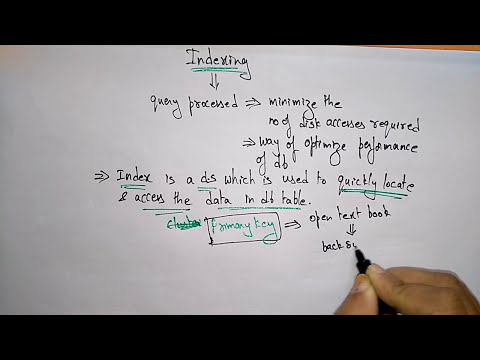 Indexing
⇓
query processed ⇒ minimize the
no of disk accesses required
⇒ way of optimize performance
of db
⇒ Index is a d.s which is used to quickly locate
& access the data in db table.
primary key ⇒ open text book
⇓
back si